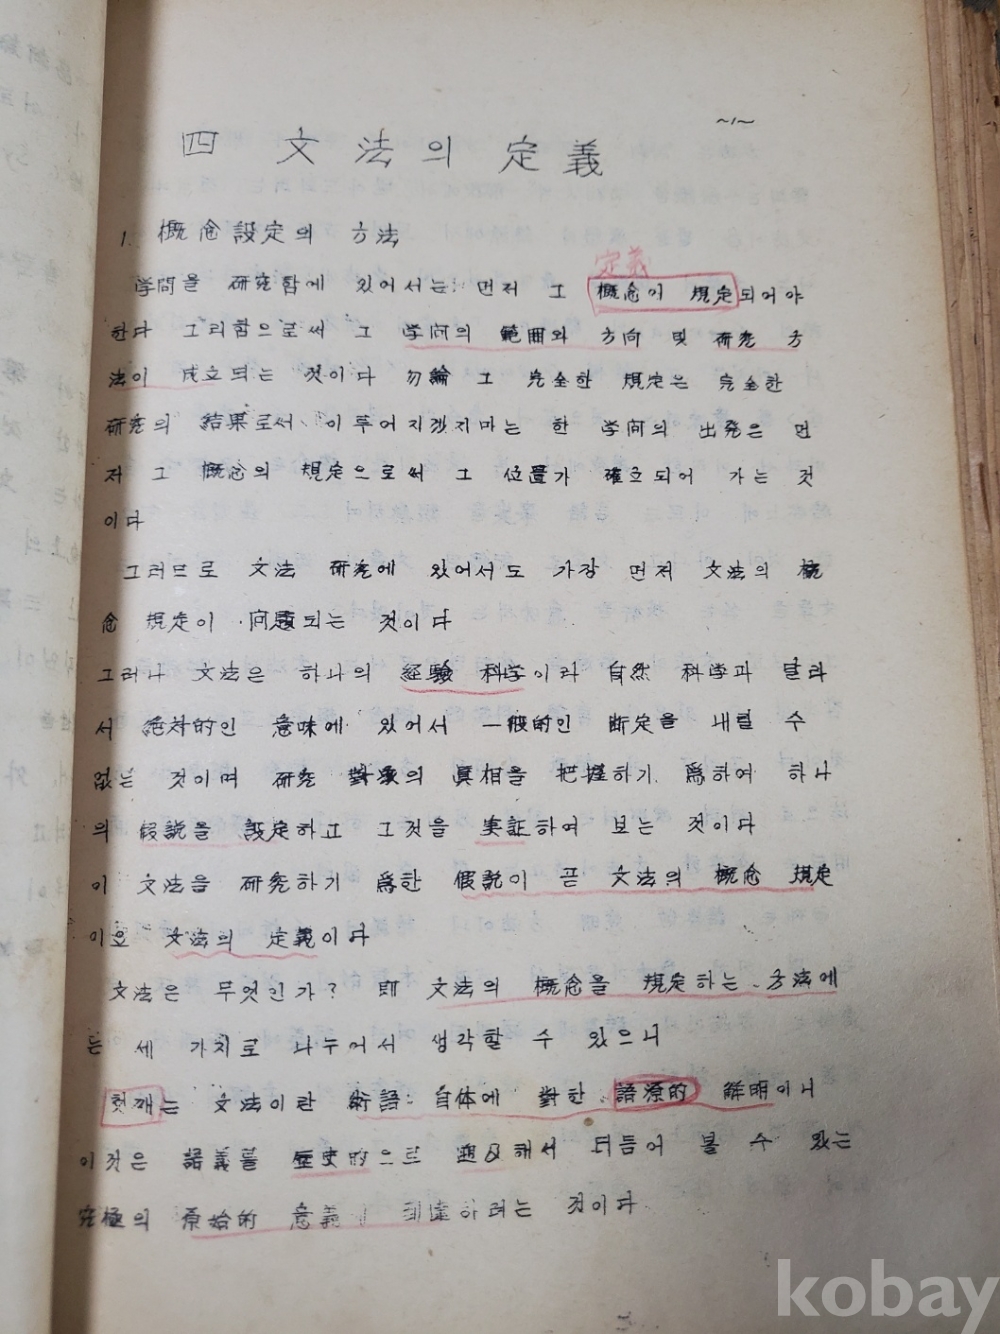 ~1~
四 文法의 定義
1. 概念設定의 方法
定義
学問을 研究함에 있어서는 먼저 그 概念이 規定되어야
한다 그리함으로써 그 学问의 範囲와 方向 및 研究 方
法이 成立되는 것이다 勿論 그 完全한 規定은 完全한
研究의 結果로써 이루어지겠지마는 한 学问의 出発은 먼
저 그 概念의 規定으로써 그 位置가 確立되어 가는 것
이다
그러므로 文法 研究에 있어서도 가장 먼저 文法의 概
念 規定이 问題되는 것이다
그러나 文法은 하나의 経験 科学이라 自然 科学과 달라
서 絶対的인 意味에 있어서 一般的인 断定을 내릴 수
없는 것이며 研究 對象의 眞相을 把握하기 爲하여 하나
의 假説을 設定하고 그것을 実証하여 보는 것이다
이 文法을 研究하기 爲한 假説이 곧 文法의 概念 規定
이요 文法의 定義이다
文法은 무엇인가? 即 文法의 概念을 規定하는 方法에
는 세 가지로 나누어서 생각할 수 있으니
첫재는 文法이란 術語 自体에 對한 語源的 解明이니
이것은 語義를 歴史的으로 遡及해서 더듬어 볼 수 있는
究極의 原始的 意義 到達하려는 것이다
kobay